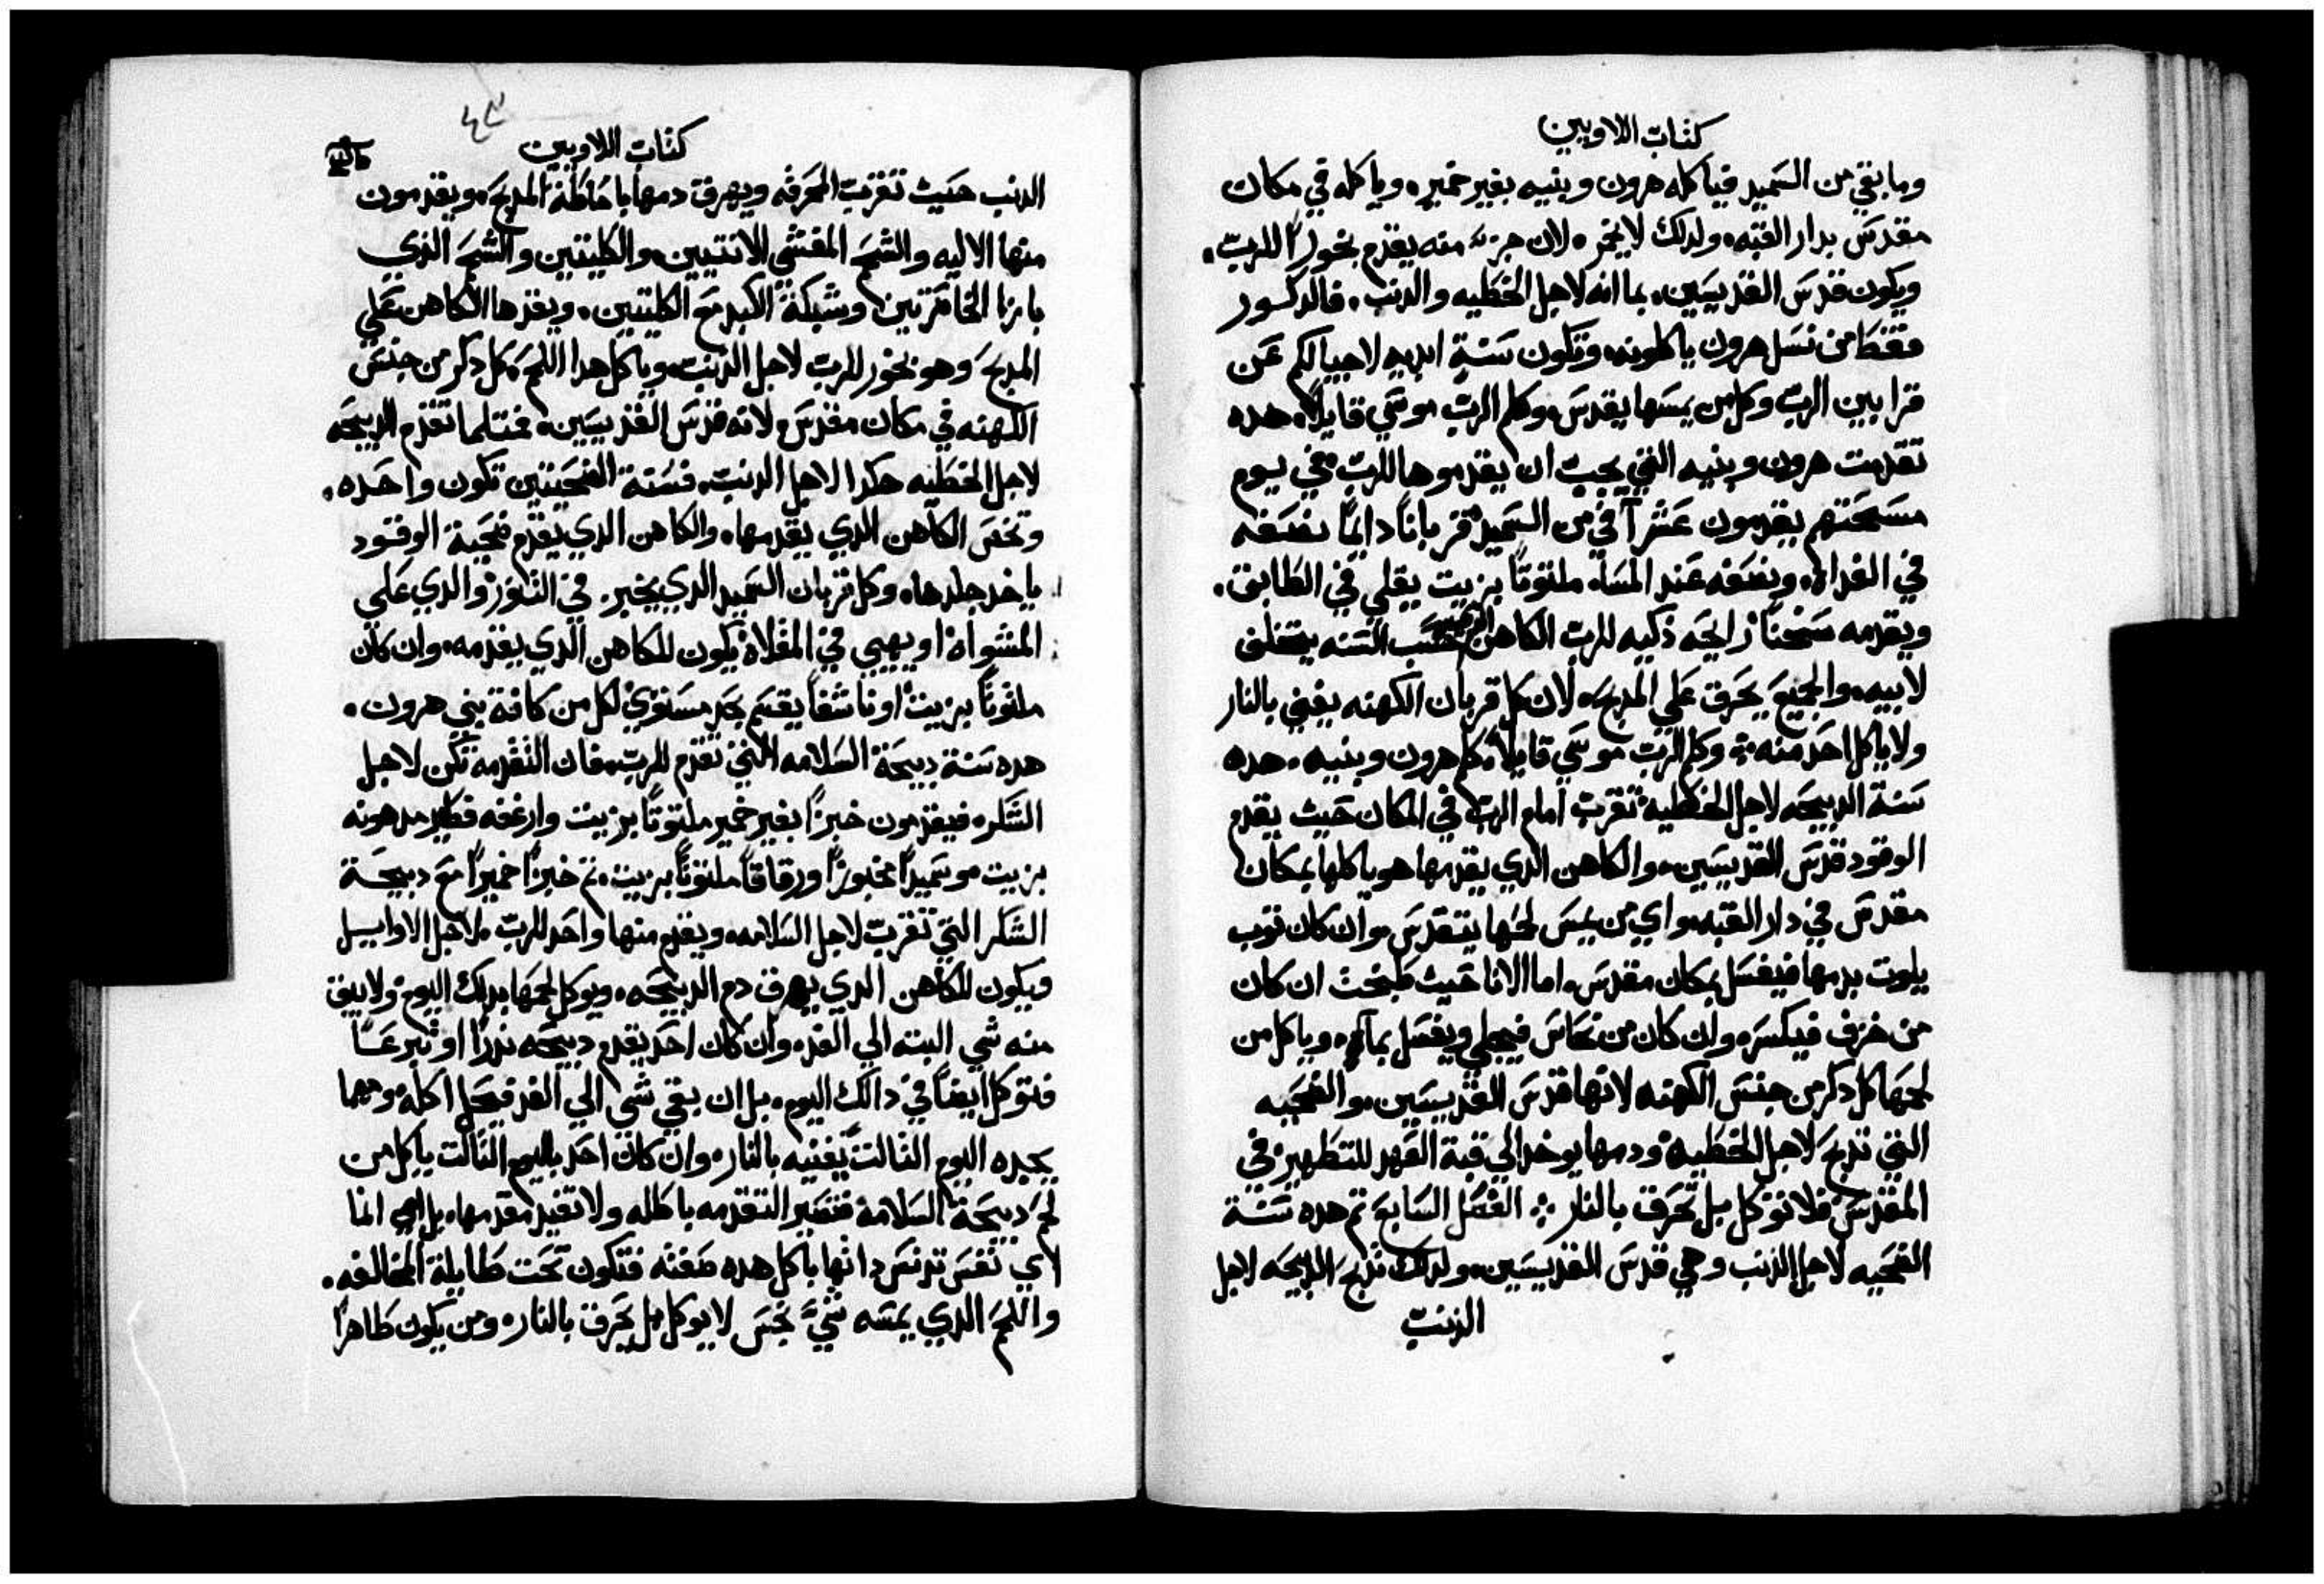 كتاب اللاويين
وما بقي من السَميد فياكله هرون وبنيه بغير خمير، وياكله في مكان
مقدسَ بدار القبه، ولدلك لا يخمر، لان جزء منه يقدم بخوراً للربّ،
ويكون قدسَ القديسَين، بما انه لاجل الخطيه والدنب، فالدكور
فقط من نسَل هرون ياكلونه، وتكون سَنةٍ ابديه لاجيالكم عَن
قرابين الربّ وكل من يمسَها يقدسَ، وكلم الربّ موسَي قايلاً، هده
تقدمت هرون وبنيه التي يجبّ ان يقدموها للربّ في يوم
مسَحَتهم يقدمون عَشر آفي من السَميد قرباناً دايماً نصَفه
في الغداه، ونصَفه عَند المسَا، ملتوتاً بزيت يقلي في الطابق،
ويقدمه سَخناً رايحَه ذكيه للربّ الكاهن الدي حسَب السَنه يتخلف
لابيه، والجميعَ يحَرق عَلي المدبحَ، لان كل قربان الكهنه يفني بالنار
ولا ياكل احَد منه ، وكلم الربّ موسَي قايلاً، كلم هرون وبنيه، هده
سَنة الدبيحَه لاجل الخطيه، تقربّ امام الربّ في المكان حَيث يقدم
الوقود قدسَ القديسَين، والكاهن الدي يقدمها هو ياكلها بمكان
مقدسَ في دار القبه، واي من يمسَ لحَمها يتقدسَ، وان كان توب
يلوت بدمها فيغسَل بمكان مقدسَ، اما الانا حَيث طبخت ان كان
من خزف فيكسَر، وان كان من نحَاسَ فيجلي ويغسَل بمآءٍ، وياكل من
لحَمها كل دكر من جنسَ الكهنه لانها قدسَ القديسَين، والضحَيه
التي تدبحَ لاجل الخطيه، ودمها يوخد الي قبة العَهد للتطهير، في
المقدسَ، فلا توكل بل تحَرق بالنار ، الفصَل السَابعَ، تم هده سَنة
الضحَيه لاجل الذنب وهي قدسَ القديسَين، ولدلك تدبحَ الدبيحَه لاجل
الذنبّ
كتاب اللاويين
الدنب حَيث تقربّ المحَرقه ويهرق دمها باحَاطة المدبحَ، ويقدمون
منها الاليه والشحَم المغشي للانتيين، والكليتين والشحَم الذي
بازا الخاصَرتين، وشبكة الكبد معَ الكليتين، ويقدها الكاهن عَلي
المدبحَ وهو بخور للربّ لاجل الذنبّ، وياكل هدا اللحَم، كل دكر من جنسَ
الكهنه في مكان مقدسَ، لانه قدسَ القديسَين، فمتلما تقدم الدبيحَه
لاجل الخطيه هكدا لاجل الدنبّ، فسَنة الضحَيتين تكون واحَده،
وتخصَ الكاهن الدي يقدمها، والكاهن الدي يقدم ضحَية الوقود
ياخد جلدها، وكل قربان السَميد الدي يخبز، في التنور، والدي عَلي
المشواه، او يهيي في المقلاة، يكون للكاهن الدي يقدمه، وان كان
ملتوتاً بزيت، او ناشفاً يقسَم بحَد مسَتوي لكل من كافة بني هرون،
هده سَنة دبيحَة السَلامه التي تقدم للربّ، فان التقدمه تكن لاجل
الشكر، فيقدمون خبزاً بغير خمير ملتوتاً بزيت وارغفه فطير مدهونه
بزيت، وسَميداً مخبوزاً ورقاقاً ملتوتاً بزيت، تم خبزاً خميراً معَ دبيحَة
الشكر التي تقربّ لاجل السَلامه، ويقدم منها واحَد للربّ، لاجل الاوايل
فيكون للكاهن الدي يهرق دم الدبيحَه، ويوكل لحَمها بدلك اليوم، ولا يبقي
منه شي البته الي الغد، وان كان احَد يقدم دبيحَه ندراً او تبرعَاً
فتوكل ايضاً في دالك اليوم، بل ان بقي شي الي الغد فيحَل اكله، ومهما
يجده اليوم التالت يفنيه بالنار، وان كان احَد باليوم التالت ياكل من
لحَم دبيحَة السَلامة فتصَير التقدمه باطله ولا تفيد مقدمها، بل
اي نفسَ تدنسَ داتها باكل هده صَفته فتكون تحَت طايلة المخالفه،
واللحَم الدي يمسَه شيٌ نجسَ لا يوكل بل يحَرق بالنار، ومن يكون طاهراً